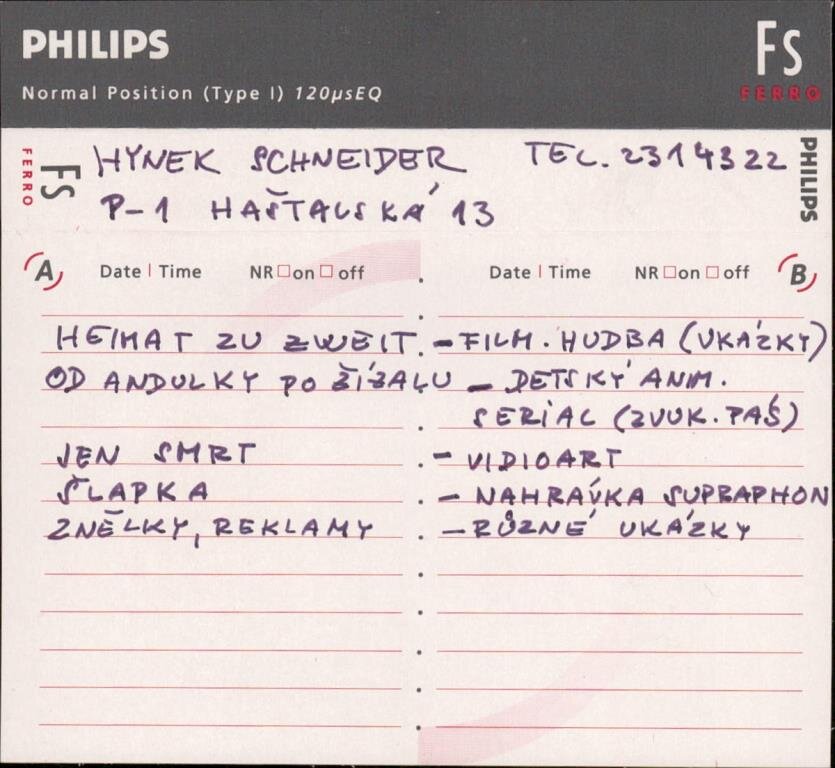 PHILIPS
Fs
Normal Position (Type I) 120µsEQ
FERRO
FERRO Fs HYNEK SCHNEIDER TEL. 2314322 PHILIPS
P-1 HAŠTALSKÁ 13
A Date | Time NR on off Date | Time NR on off B
HEIMAT ZU ZWEIT - FILM. HUDBA (UKÁZKY)
OD ANDULKY PO ŽÍŽALU - DETSKÝ ANIM.
SERIÁL (ZVUK. PAS)
JEN SMRT - VIDIOART
ŠLAPKA - NAHRÁVKA SUPRAPHON
ZNĚLKY, REKLAMY - RŮZNÉ UKÁZKY